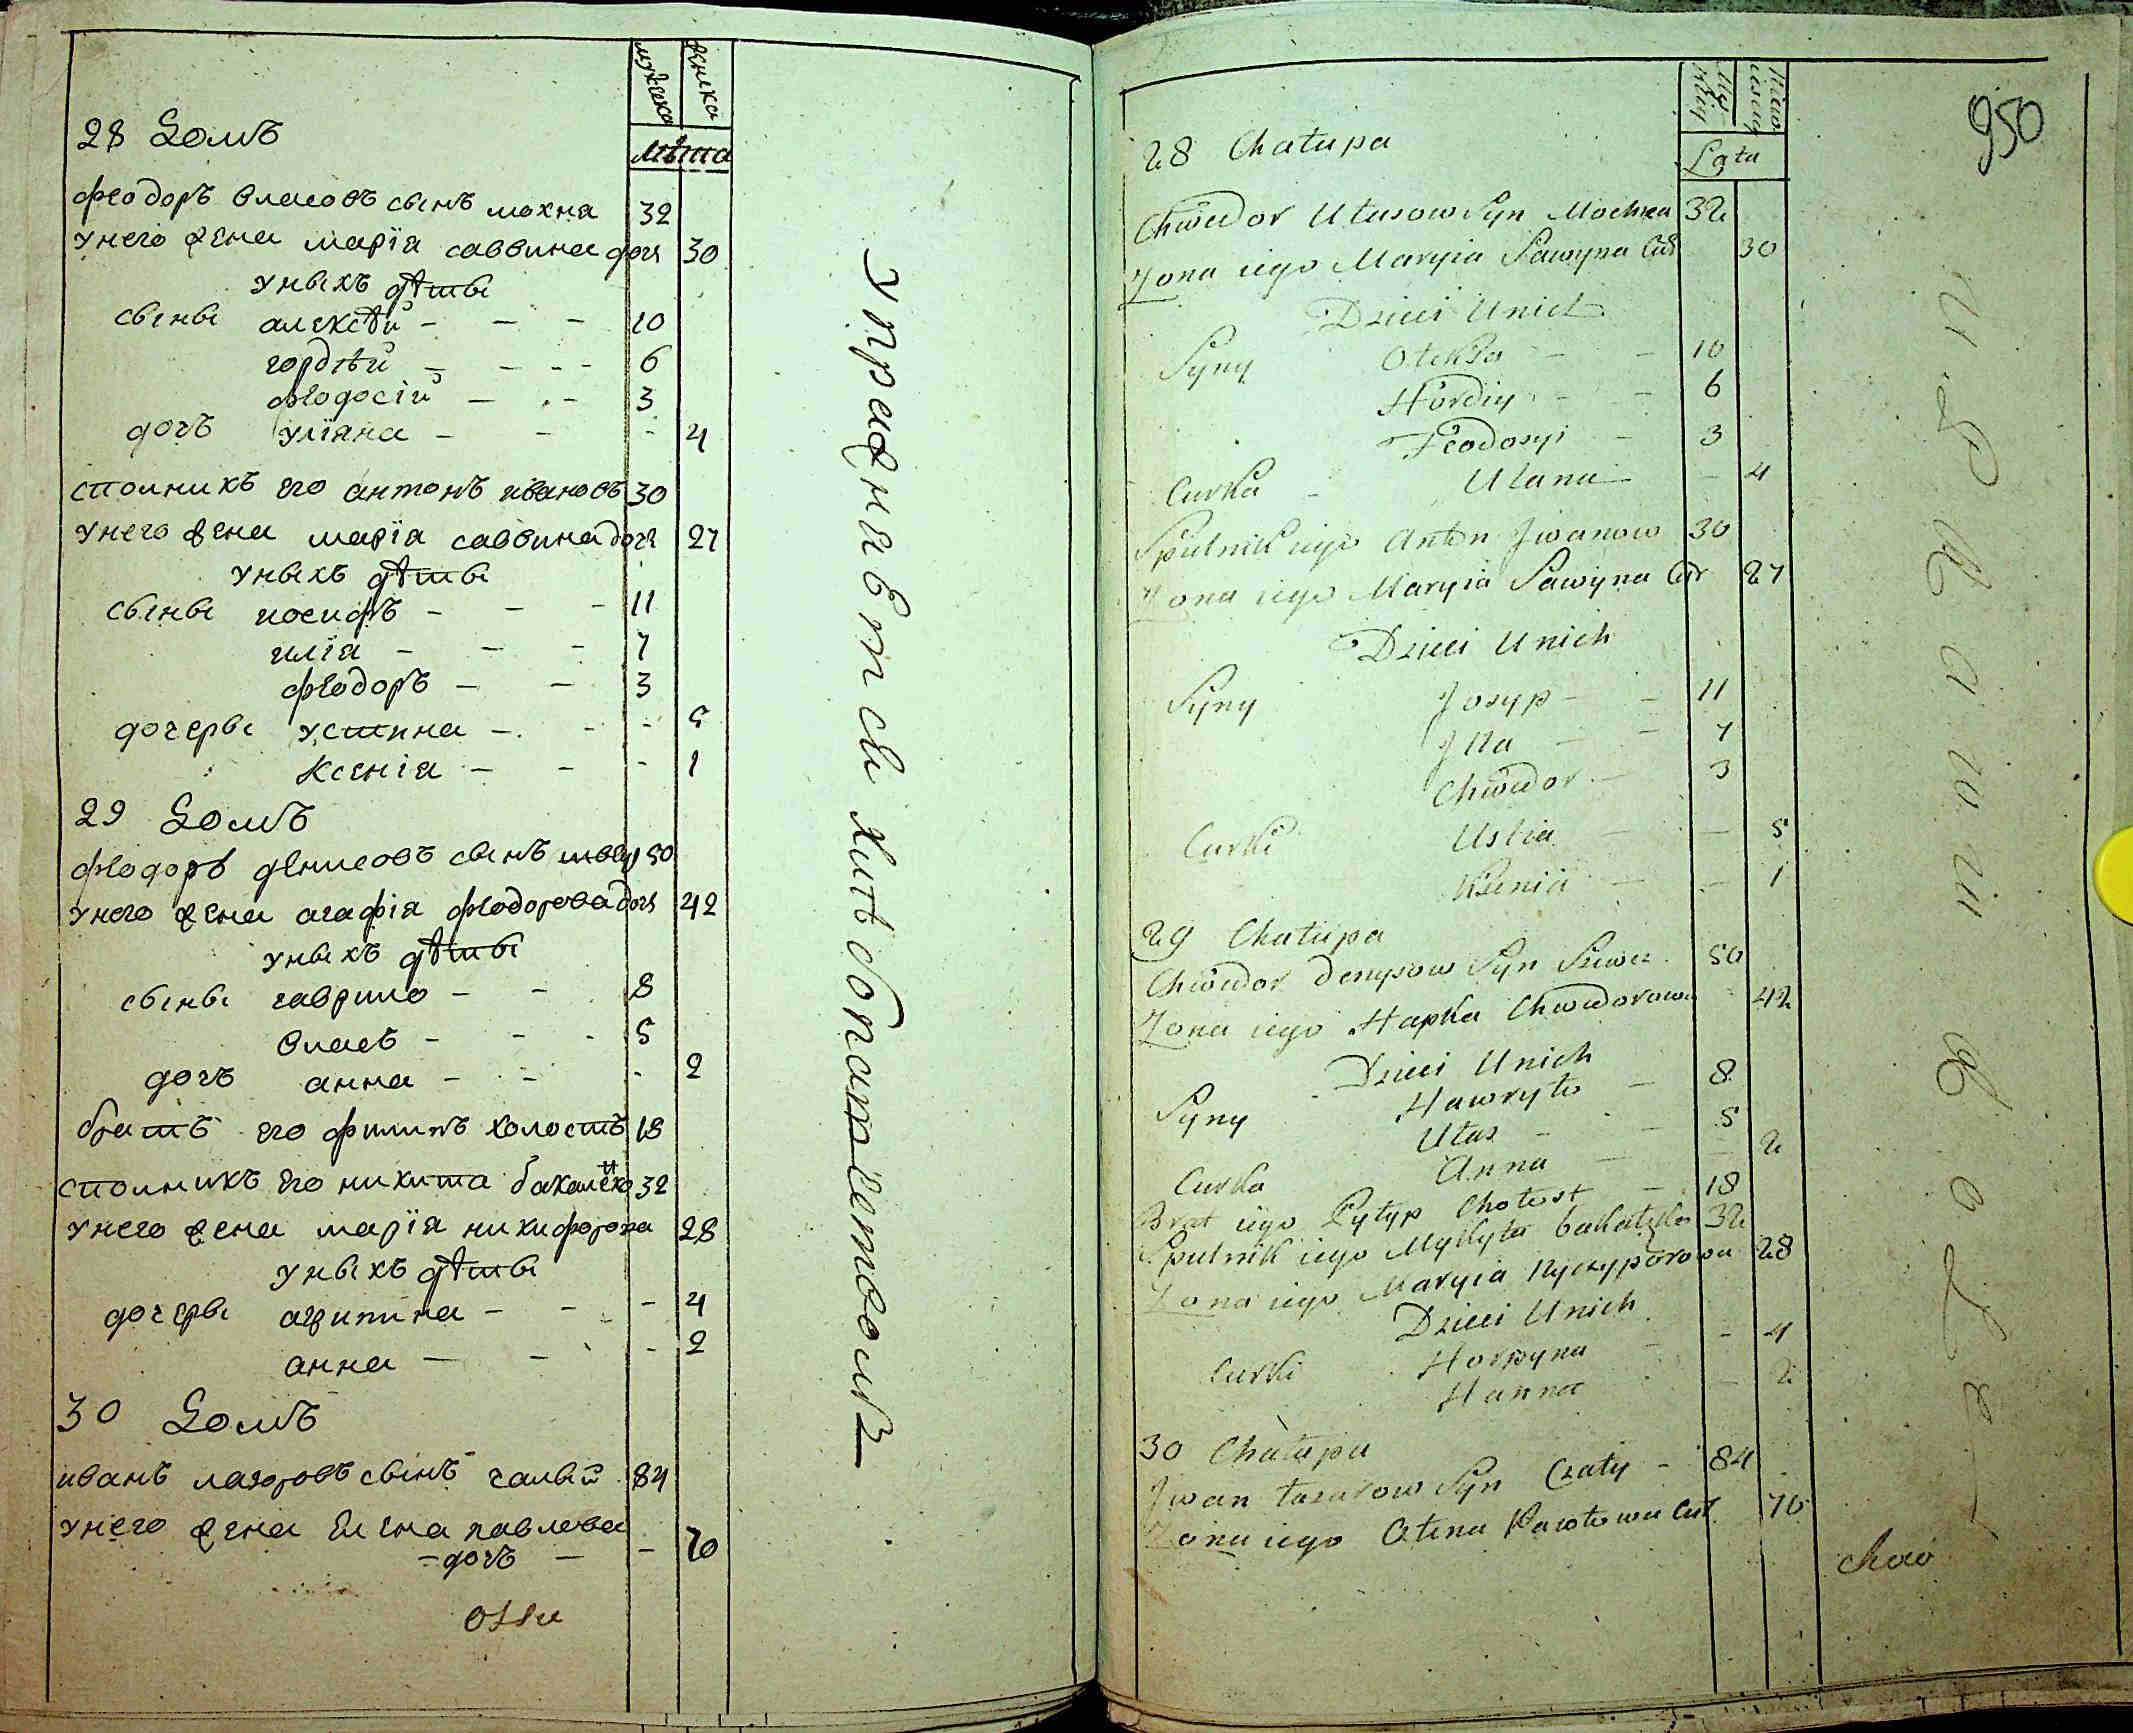 мужеска женска
лѣта
28 Домъ
феодоръ власовъ сынъ махна 32
у него жена марїа саввина дочъ 30
у ныхъ дѣты
сыны алексѣй - - - 10
гордѣй - - - - 6
феодосій - - - 3
дочъ улїана - - - 4
столникъ его антонъ ивановъ 30
у него жена марїа саввина дочъ 27
у ныхъ дѣты
сыны иосифъ - - - 11
илїа - - - 7
феодоръ - - 3
дочеры устина - - - 5
ксенїа - - - 1
29 Домъ
феодоръ денисовъ сынъ швец 50
у него жена агафїа феодорова дочъ 42
у ныхъ дѣты
сыны гаврило - - 8
власъ - - - 5
дочъ анна - - - 2
братъ его филипъ холостъ 18
столникъ его никита 32
у него жена марїа никифорова 28
у ныхъ дѣты
дочеры агрипина - - - 4
анна - - - 2
30 Домъ
иванъ лазоровъ сынъ чалый 84
у него жена Елена павлова
- дочъ - - 70
упражнѣются хлѣбопашетвомъ
950
Lata
28 Chałupa
Chwedor Ułasow Syn Mochna 32
Zona iego Maryia Sawyna Cur 30
Dzieci Unich
Syny Oleksa - - 10
Hordiy - - 6
Feodosyi - 3
Curka - Ulana - 4
Sputnik iego Anton Jwanow 30
Zona iego Maryia Sawyna Cur 27
Dzieci Unich
Syny Josyp - - 11
Jlia - - 7
Chwedor - 3
Curki Ustia - - 5
Ksenia - - 1
29 Chałupa
Chwedor Denysow Syn Szwec 50
Zona iego Hapka Chwedorowa 42
Dzieci Unich
Syny Hawryło - 8
Ułas - - 5
Curka Anna - - 2
Brat iego Pyłyp Chołost - 18
Sputnik iego Mykyta 32
Zona iego Maryia Nyczyporowa 28
Dzieci Unich
Curki Horpyna - - 4
Hanna - 2
30 Chałupa
Jwan Łazarow Syn Czały - 84
Zona iego Ołena Pawłowa Cur 70